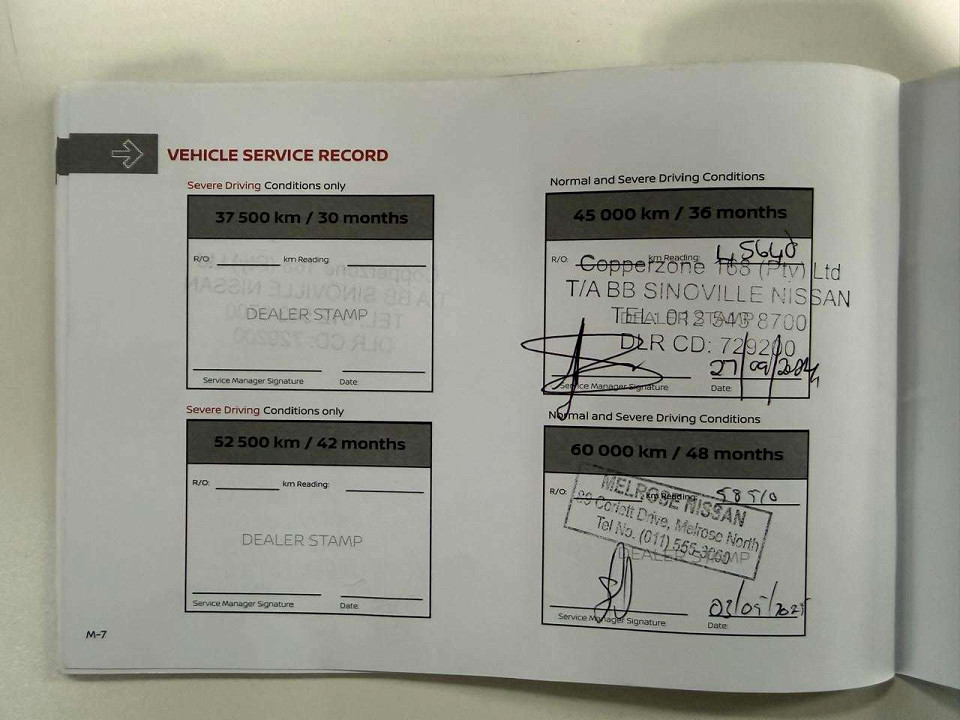 VEHICLE SERVICE RECORD
Severe Driving Conditions only
37 500 km / 30 months
R/O: km Reading:
DEALER STAMP
Service Manager Signature Date:
Normal and Severe Driving Conditions
45 000 km / 36 months
R/O: km Reading: 45640
Copperzone 168 (Pty) Ltd
T/A BB SINOVILLE NISSAN
TEL: 012 543 8700
DEALER STAMP
DLR CD: 729200
27/09/2024
Service Manager Signature Date:
Severe Driving Conditions only
52 500 km / 42 months
R/O: km Reading:
DEALER STAMP
Service Manager Signature Date:
Normal and Severe Driving Conditions
60 000 km / 48 months
R/O: km Reading: 58510
MELROSE NISSAN
Corlett Drive, Melrose North
Tel No. (011) 555-3060
DEALER STAMP
Service Manager Signature Date:
M-7